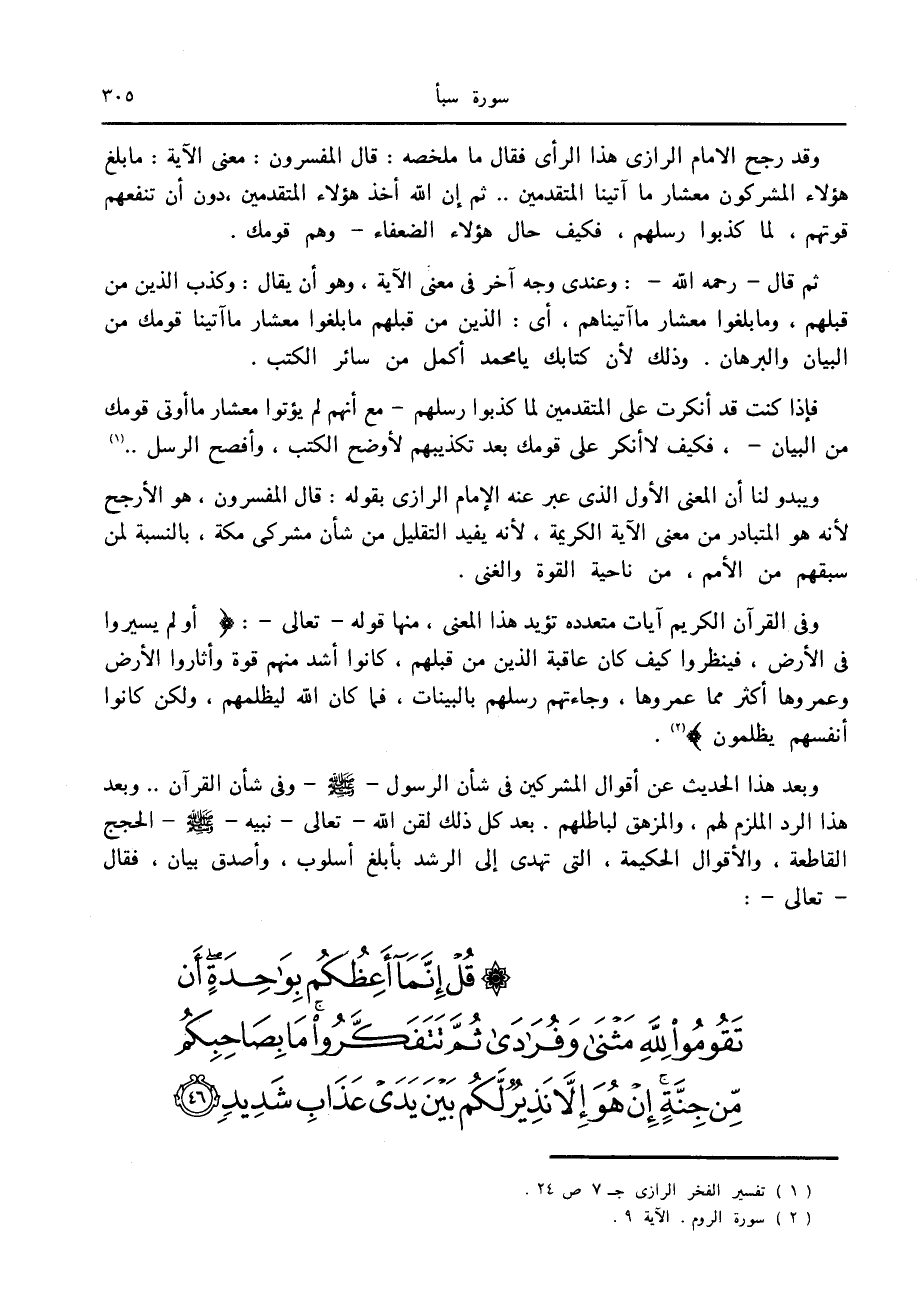 سورة سبأ ٣٠٥
وقد رجح الامام الرازى هذا الرأى فقال ما ملخصه : قال المفسرون : معنى الآية : مابلغ
هؤلاء المشركون معشار ما آتينا المتقدمين .. ثم إن الله أخذ هؤلاء المتقدمين ،دون أن تنفعهم
قوتهم ، لما كذبوا رسلهم ، فكيف حال هؤلاء الضعفاء – وهم قومك .
ثم قال – رحمه الله – : وعندى وجه آخر فى معنى الآية ، وهو أن يقال : وكذب الذين من
قبلهم ، ومابلغوا معشار ماآتيناهم ، أى : الذين من قبلهم مابلغوا معشار ماآتينا قومك من
البيان والبرهان . وذلك لأن كتابك يامحمد أكمل من سائر الكتب .
فإذا كنت قد أنكرت على المتقدمين لما كذبوا رسلهم – مع أنهم لم يؤتوا معشار ماأوتى قومك
من البيان – ، فكيف لاأنكر على قومك بعد تكذيبهم لأوضح الكتب ، وأفصح الرسل ..(١)
ويبدو لنا أن المعنى الأول الذى عبر عنه الإمام الرازى بقوله : قال المفسرون ، هو الأرجح
لأنه هو المتبادر من معنى الآية الكريمة ، لأنه يفيد التقليل من شأن مشركى مكة ، بالنسبة لمن
سبقهم من الأمم ، من ناحية القوة والغنى .
وفى القرآن الكريم آيات متعدده تؤيد هذا المعنى ، منها قوله – تعالى – : ﴿ أو لم يسيروا
فى الأرض ، فينظروا كيف كان عاقبة الذين من قبلهم ، كانوا أشد منهم قوة وأثاروا الأرض
وعمروها أكثر مما عمروها ، وجاءتهم رسلهم بالبينات ، فما كان الله ليظلمهم ، ولكن كانوا
أنفسهم يظلمون ﴾(٢) .
وبعد هذا الحديث عن أقوال المشركين فى شأن الرسول – ﷺ – وفى شأن القرآن .. وبعد
هذا الرد الملزم لهم ، والمزهق لباطلهم . بعد كل ذلك لقن الله – تعالى – نبيه – ﷺ – الحجج
القاطعة ، والأقوال الحكيمة ، التى تهدى إلى الرشد بأبلغ أسلوب ، وأصدق بيان ، فقال
– تعالى – :
۞ قُلْ إِنَّمَآ أَعِظُكُم بِوَٰحِدَةٍ ۖ أَن
تَقُومُوا۟ لِلَّهِ مَثْنَىٰ وَفُرَٰدَىٰ ثُمَّ تَتَفَكَّرُوا۟ ۚ مَا بِصَاحِبِكُم
مِّن جِنَّةٍ ۚ إِنْ هُوَ إِلَّا نَذِيرٌ لَّكُم بَيْنَ يَدَىْ عَذَابٍ شَدِيدٍ ﴿٤٦﴾
( ١ ) تفسير الفخر الرازى جـ ٧ ص ٢٤ .
( ٢ ) سورة الروم . الآية ٩ .